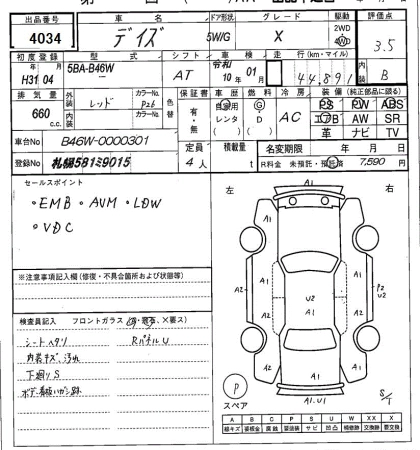 出品番号 車名 ドア形状 グレード 駆動 評価点
4034 デイズ 5W/G X 2WD 4WD 3.5
初度登録 型式 シフト 車検 走行(km・マイル) 内装
H31年 04月 5BA-B46W AT 令和10年01月 44,891 B
排気量 外装 カラーNo. 色替 保証書 車歴 燃料 冷房 装備(純正部品に限る)
660c.c. レッド P26 有・無 自家用 レンタ G D AC PS PW ABS
内装 カラーNo. エアB AW SR
革 ナビ TV
車台No B46W-0000301 定員 積載量 名変期限 年 月 日
登録No 札幌581ミ9015 4人 t R料金 未預託・預託済 7,590円
セールスポイント
・EMB ・AVM ・LDW
・VDC
※注意事項記入欄(修復・不具合箇所および状態等)
検査員記入 フロントガラス
シートヘタリ RパネルU
内装キズ汚れ
下廻りS
左 右
A1
A1 A1
A2 A1 A1 P2
U2
U2
A2 A1 A1 A2
A1
A1.U1
P
スペア
S/T
A B C P S U W X XX X
線キズ